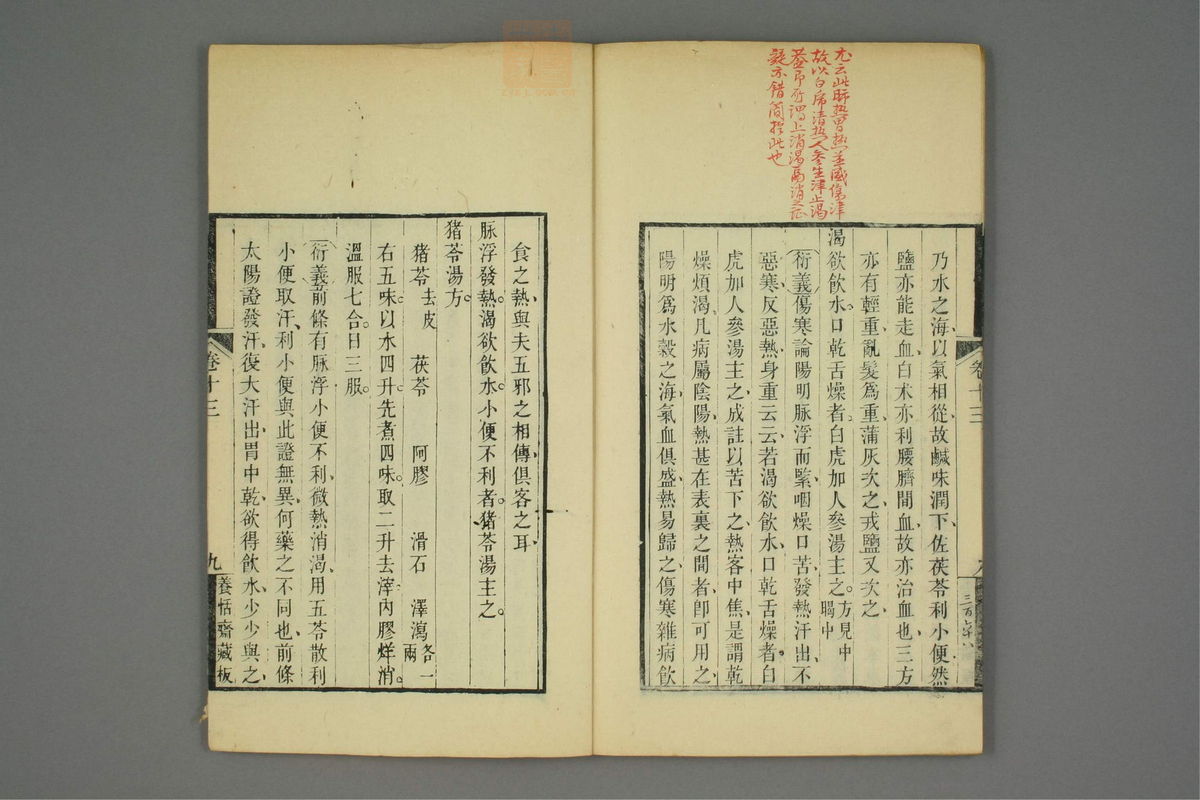 尤云此肺热胃热並盛傷津
故以白虎清热人参生津止渴
蓋即所謂上消渴膈消之症
疑亦錯簡於此也
乃水之海以氣相從故鹹味潤下佐茯苓利小便然
鹽亦能走血白术亦利腰臍間血故亦治血也三方
亦有輕重亂髮爲重蒲灰次之戎鹽又次之
渴欲飲水口乾舌燥者白虎加人參湯主之方見中暍中
衍義傷寒論陽明脉浮而緊咽燥口苦發熱汗出不
惡寒反惡熱身重云云若渴欲飲水口乾舌燥者白
虎加人參湯主之成註以苦下之熱客中焦是謂乾
燥煩渴凡病屬陰陽熱甚在表裏之間者卽可用之
陽明爲水穀之海氣血俱盛熱易歸之傷寒雜病飲
卷十三
食之熱與夫五邪之相傳俱客之耳
脉浮發熱渴欲飲水小便不利者猪苓湯主之
猪苓湯方
猪苓去皮 茯苓 阿膠 滑石 澤瀉各一兩
右五味以水四升先煮四味取二升去滓內膠烊消
溫服七合日三服
衍義前條有脉浮小便不利微熱消渴用五苓散利
小便取汗利小便與此證無異何藥之不同也前條
太陽證發汗復大汗出胃中乾欲得飲水少少與之
卷十三
九
養恬齋藏板